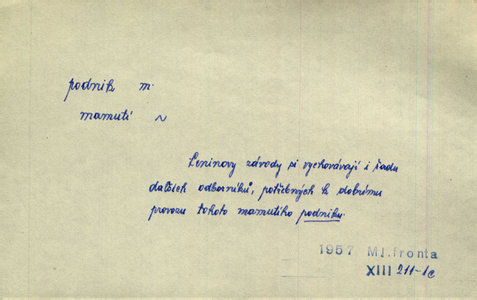 podnik m.
mamutí ~
Leninovy závody si vychovávají i řadu
dalších odborníků, potřebných k dobrému
provozu tohoto mamutího podniku.
1957 Ml.fronta
XIII 211-1c